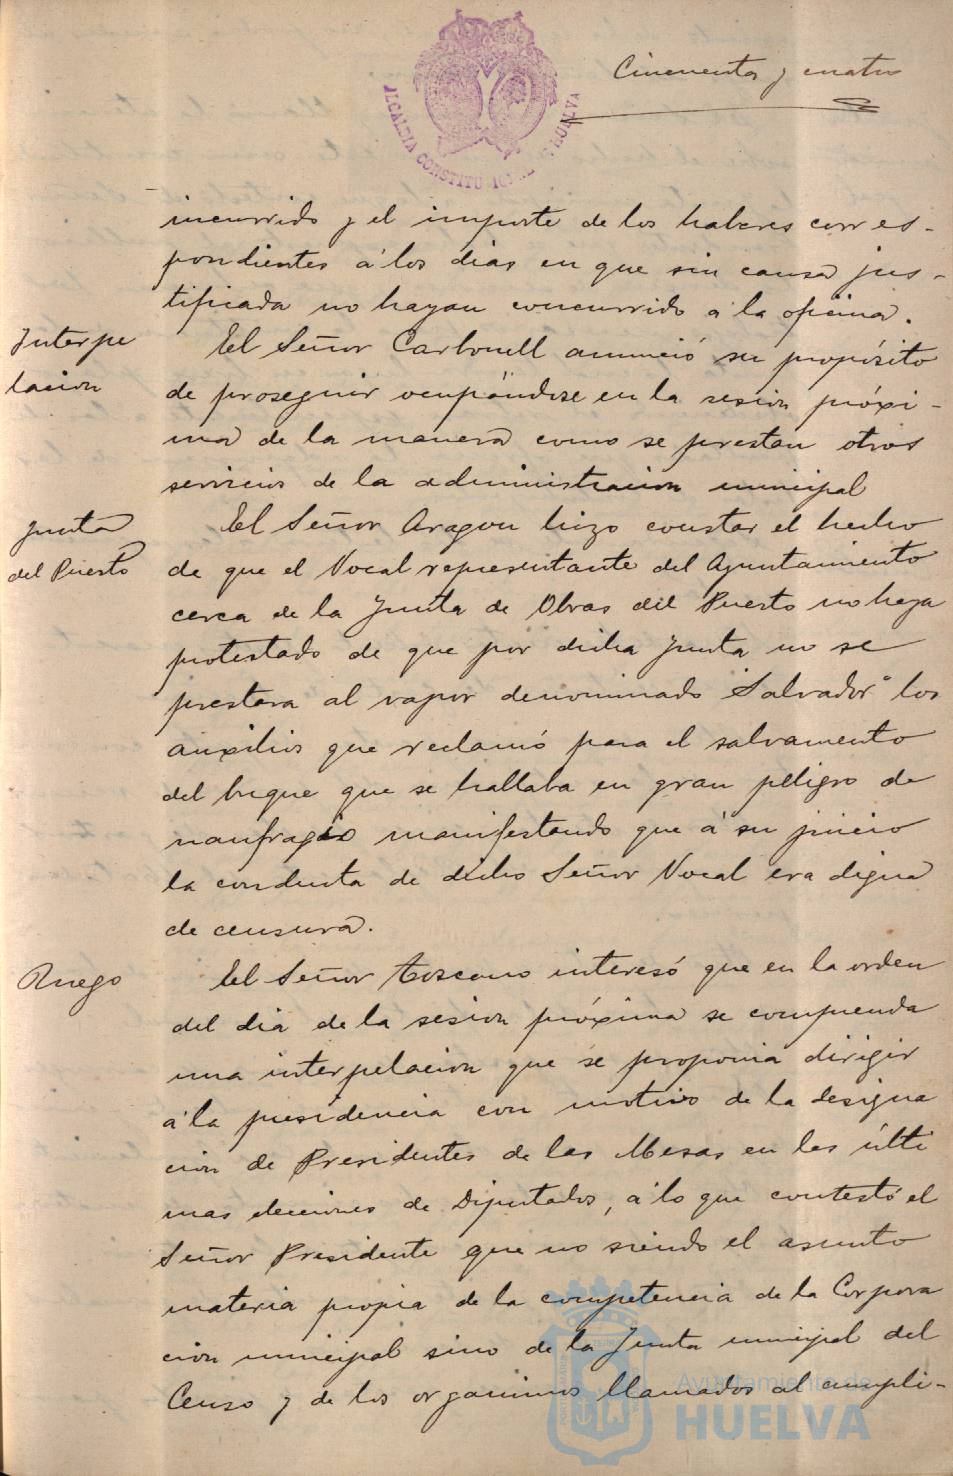 Cincuenta y cuatro
ALCALDIA CONSTITUCIONAL HUELVA
incurrido y el importe de los haberes corres-
pondientes á los dias en que sin causa jus-
tificada no hayan concurrido á la oficina.
Interpe
lacion
El Señor Carbonell anunció su propósito
de proseguir ocupándose en la sesion próxi-
ma de la manera como se prestan otros
servicios de la administracion municipal
Junta
del Puerto
El Señor Aragon hizo constar el hecho
de que el Vocal representante del Ayuntamiento
cerca de la Junta de Obras del Puerto no haya
protestado de que por dicha Junta no se
prestara al vapor denominado "Salvador" los
auxilios que reclamó para el salvamento
del buque que se hallaba en gran peligro de
naufragio manifestando que á su juicio
la conducta de dicho Señor Vocal era digna
de censura.
Ruego
El Señor Toscano interesó que en la orden
del dia de la sesion próxima se comprenda
una interpelacion que se proponia dirigir
á la presidencia con motivo de la designa
cion de Presidentes de las Mesas en las últi
mas elecciones de Diputados, á lo que contestó el
Señor Presidente que no siendo el asunto
materia propia de la competencia de la Corpora
cion municipal sino de la Junta municipal del
Censo y de los organismos llamados al cumpli-
Ayuntamiento de
HUELVA